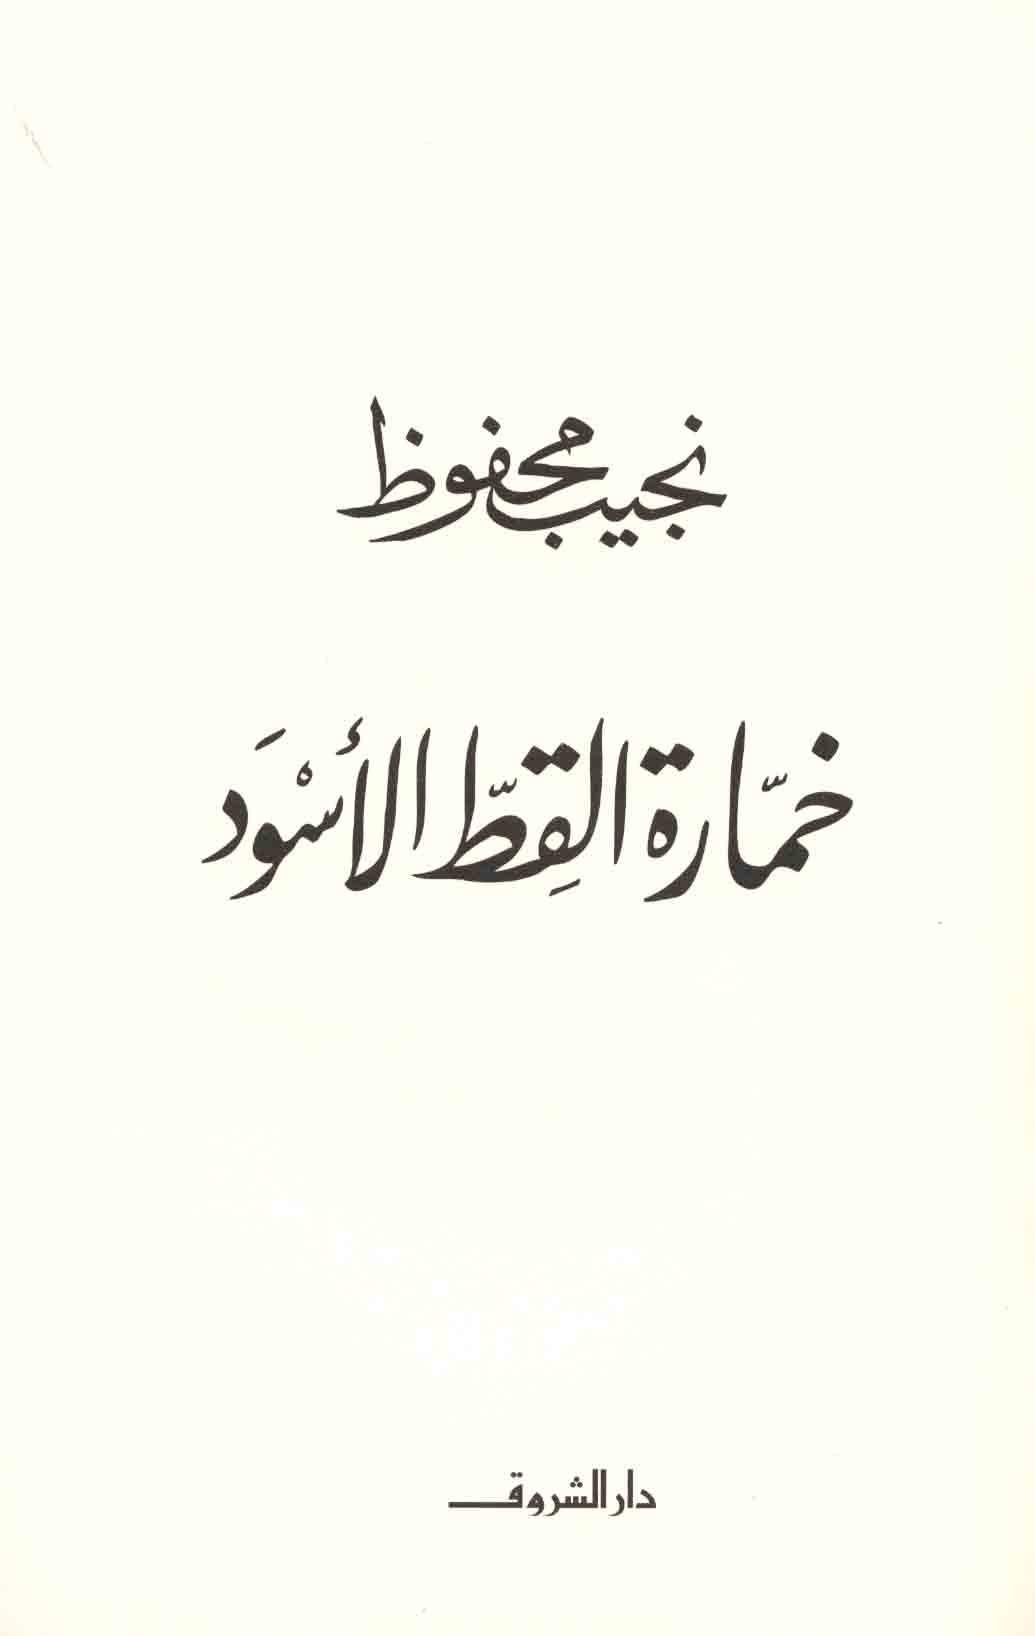 نجيب محفوظ
خمّارة القِطّ الأسْوَد
دار الشروق